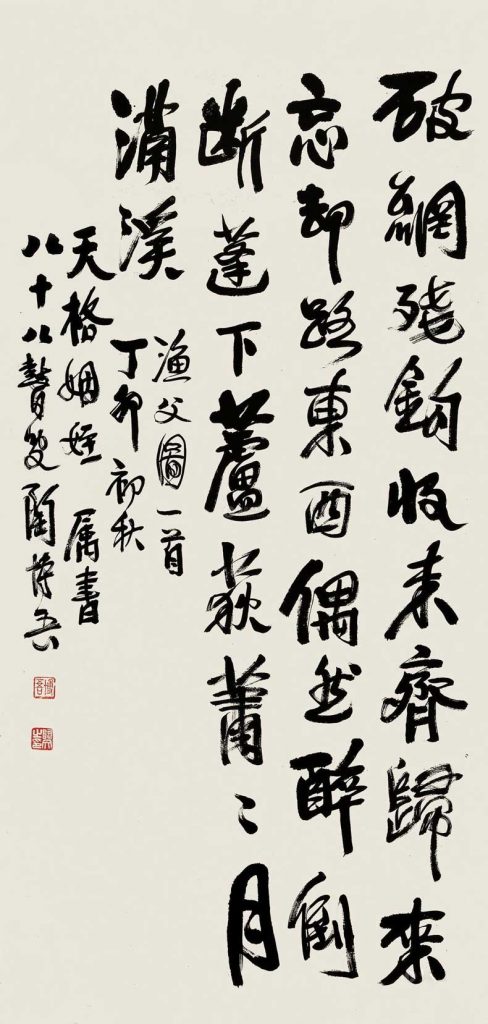 破網殘鉤收未齊歸來
忘卻路東西偶然醉倒
斷蓬下蘆荻蕭〻月
滿溪
漁父圖一首
丁卯初秋
天格姻姪屬書
八十八瞽叟陶博吾